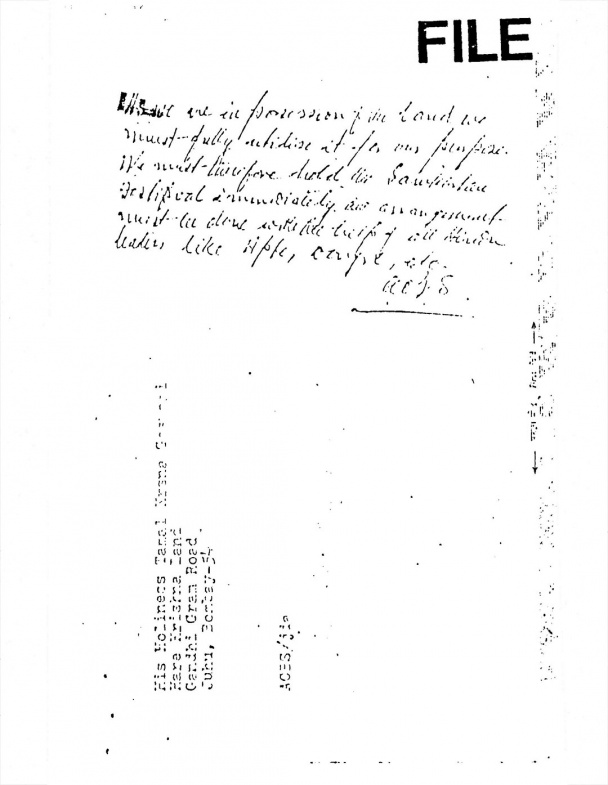 FILE
we are in possession of the land we
must fully utilise it for our purpose.
We must therefore hold the Sankirtan
Festival immediately. An arrangement
must be done with the help of all Hindu
leaders like etc.
ACBS
His Holiness Tamal Krsna Goswami
Hare Krishna Land
Gandhi Gram Road,
Juhu, Bombay-54
ACBS/